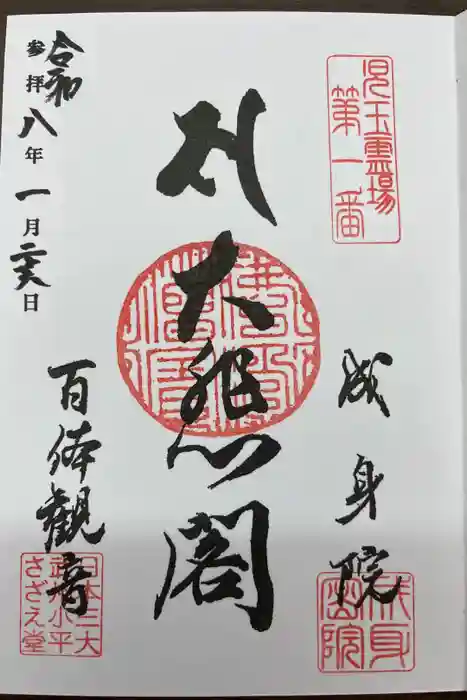 児玉霊場
第一番
成身院
大悲閣
令和八年一月二六日
参拝
百体觀音
日本三大
武州小平
さざえ堂